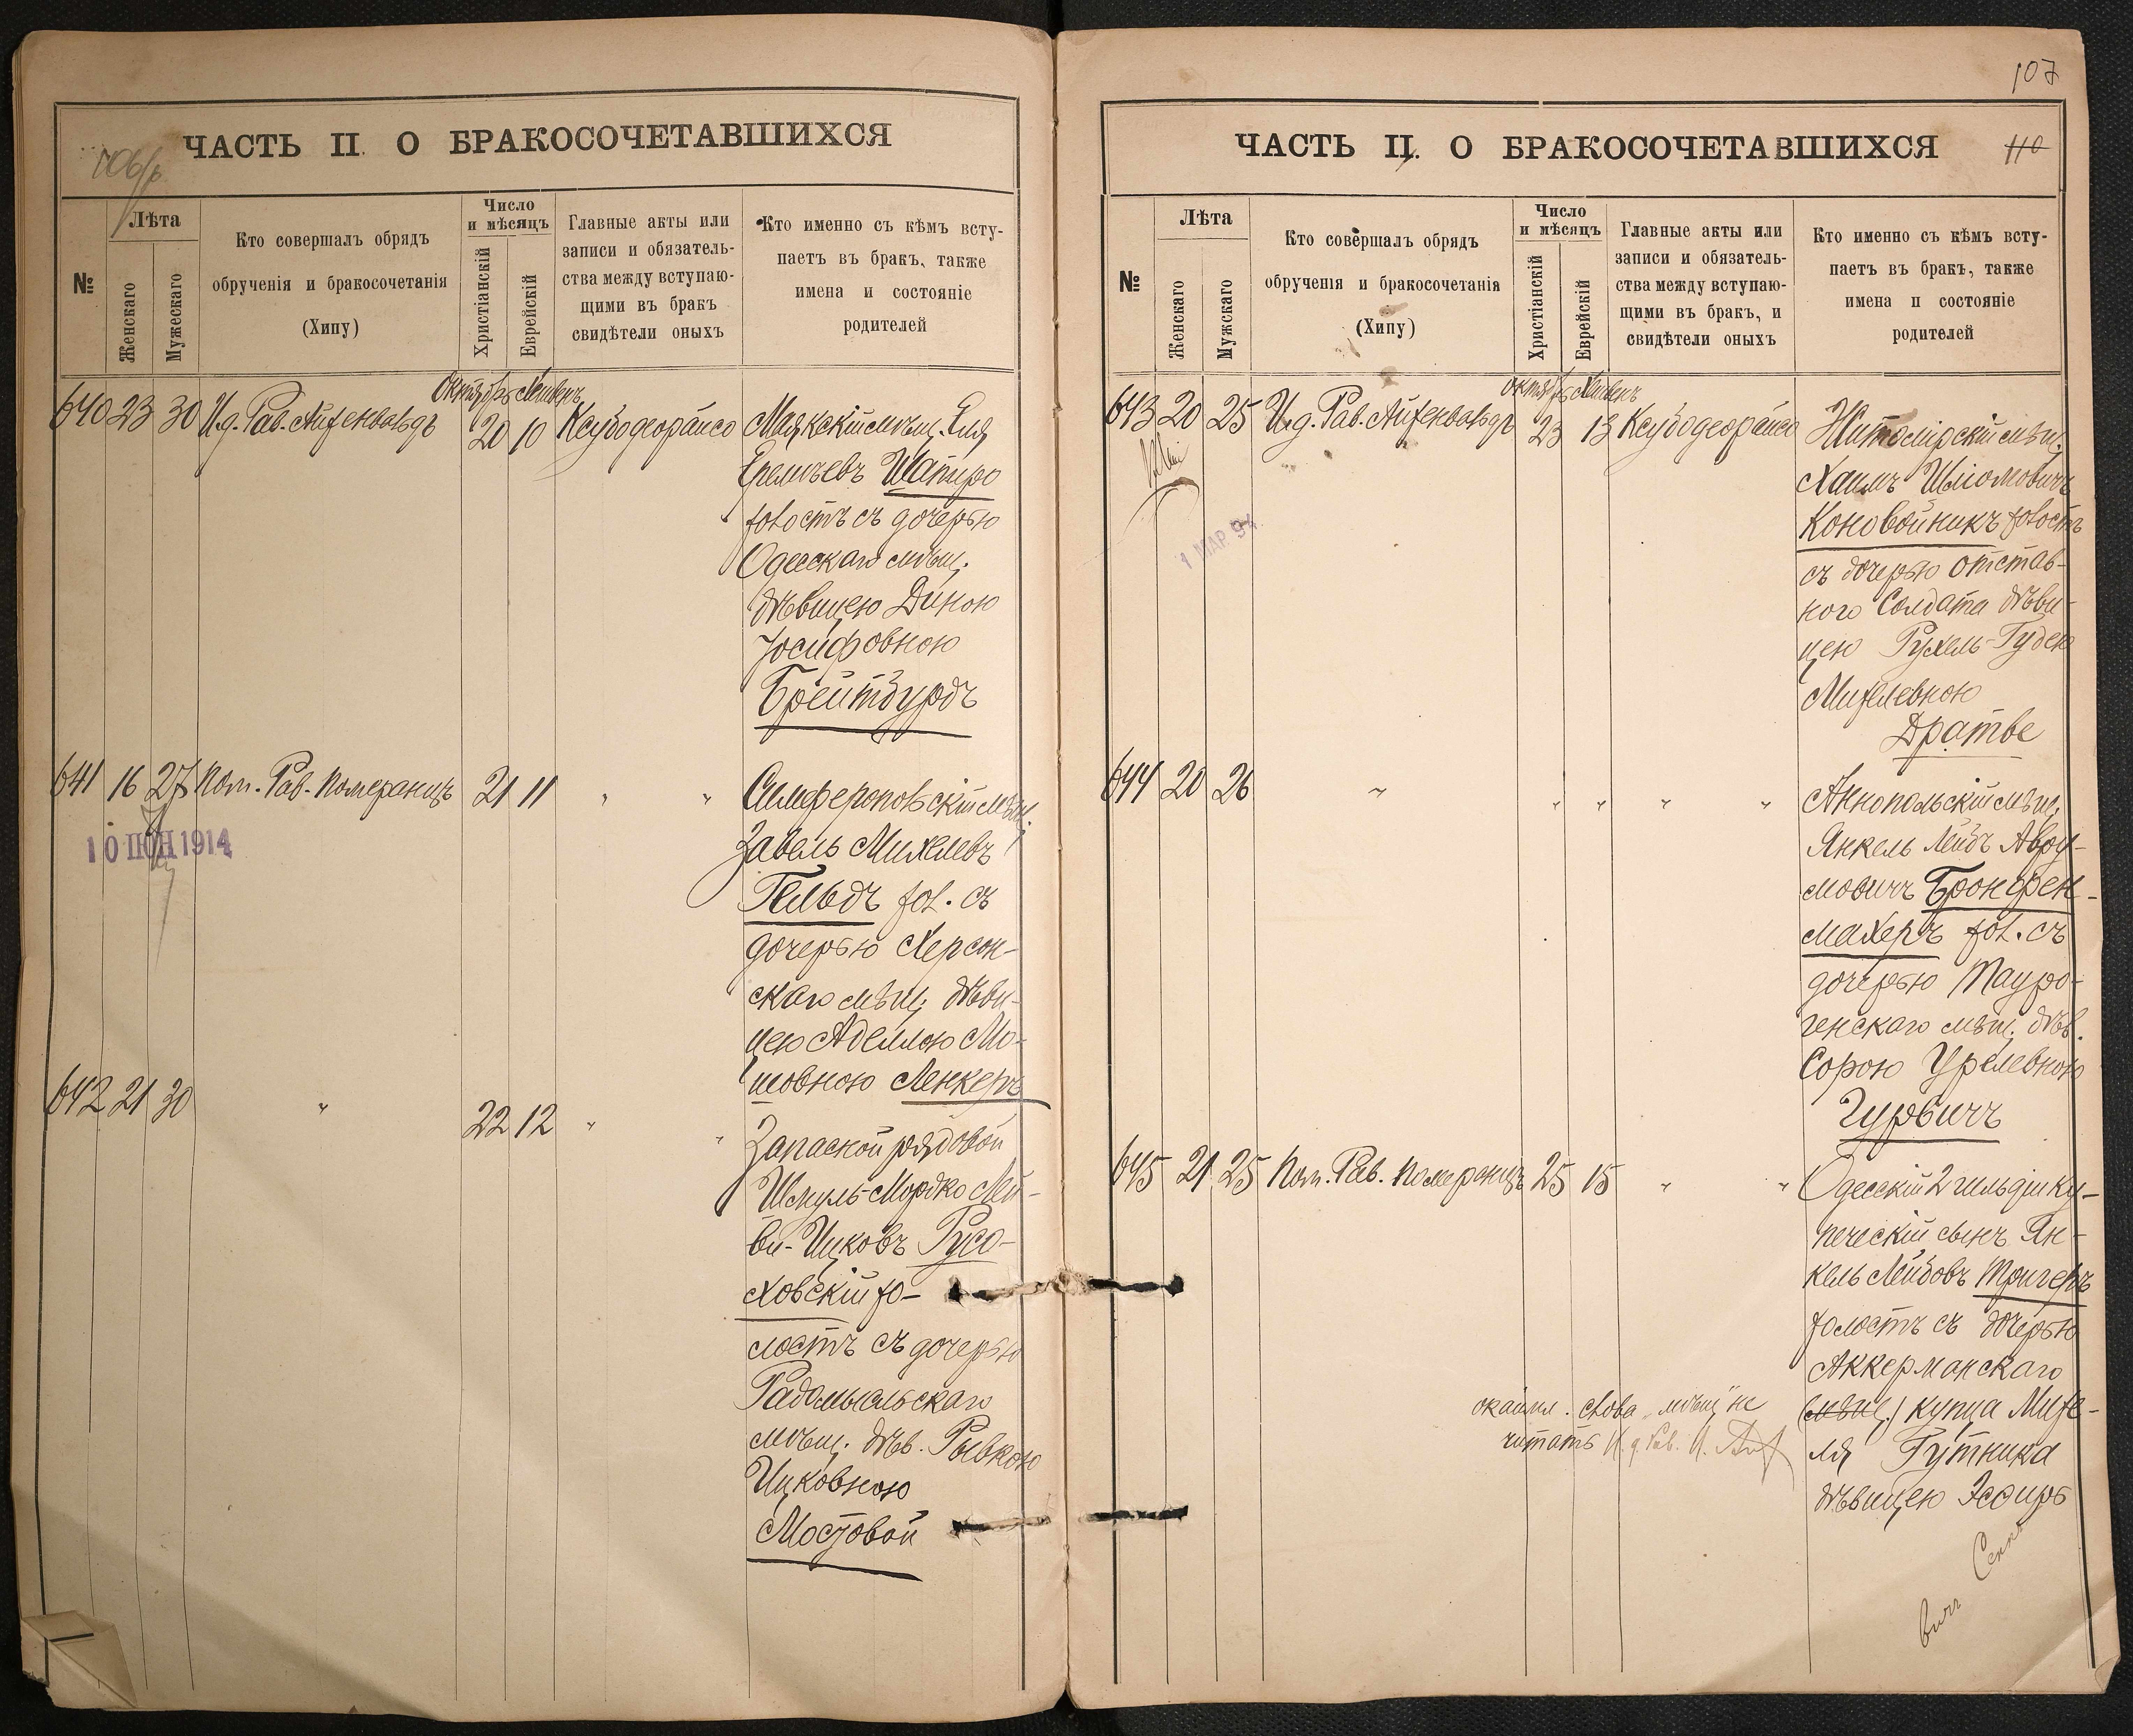 ЧАСТЬ II. О БРАКОСОЧЕТАВШИХСЯ
№
Лѣта
Женскаго
Мужескаго
Кто совершалъ обрядъ
обрученія и бракосочетанія
(Хипу)
Число
и мѣсяцъ
Христіанскій
Еврейскій
Главные акты или
записи и обязатель-
ства между вступаю-
щими въ бракъ
свидѣтели оныхъ
Кто именно съ кѣмъ всту-
паетъ въ бракъ, также
имена и состояніе
родителей
Октябрь Хешвенъ
640 23 30 И.д. Рав. Айзенвальдъ 20 10 Ксубодеорайсо
Маякскій мѣщ. Еля
Еремѣевъ Шапиро
холостъ съ дочерью
Одесскаго мѣщ.
дѣвицею Диною
Іосифовною
Брейтбурдъ
641 16 27 Пом. Рав. Померанцъ 21 11 " "
10 ІЮН 1914
Симферопольскій мѣщ.
Завель Михелевъ
Гельдъ хол. съ
дочерью Херсон-
скаго мѣщ. дѣви-
цею Аделлою Мо-
шовною Ленкеръ
642 21 30 " 22 12 " "
Запасной рядовой
Шмуль-Мордко Лей-
би-Ицковъ Русо-
ховскій хо-
лостъ съ дочерью
Радомысльскаго
мѣщ. дѣв. Рывкою
Ицковною
Мостовой
107
ЧАСТЬ II. О БРАКОСОЧЕТАВШИХСЯ
110
№
Лѣта
Женскаго
Мужскаго
Кто совершалъ обрядъ
обрученія и бракосочетанія
(Хипу)
Число
и мѣсяцъ
Христіанскій
Еврейскій
Главные акты или
записи и обязатель-
ства между вступаю-
щими въ бракъ, и
свидѣтели оныхъ
Кто именно съ кѣмъ всту-
паетъ въ бракъ, также
имена и состояніе
родителей
Октябрь Хешвенъ
643 20 25 И.д. Рав. Айзенвальдъ 23 13 Ксубодеорайсо
1 МАР. 94.
Житомірскій мѣщ.
Хаимъ Шліомовичъ
Коновойникъ холостъ
съ дочерью отстав-
ного солдата дѣви-
цею Рухель-Гудею
Михелевною
Дратве
644 20 26 " " " " "
Аннопольскій мѣщ.
Янкель Лейбъ Авру-
мовичъ Бронфен-
махеръ хол. съ
дочерью Тауро-
генскаго мѣщ. дѣв.
Сорою Урелевною
Гурвичъ
645 21 25 Пом. Рав. Померанцъ 25 15 " "
Одесскій 2 гильдіи ку-
печескій сынъ Ян-
кель Лейбовъ Тригеръ
холостъ съ дочерью
Аккерманскаго
(мѣщ.) купца Михе-
ля Гутника
дѣвицею Эсфирь
окаймл. слова "мѣщ" не
читать И.д. Рав.